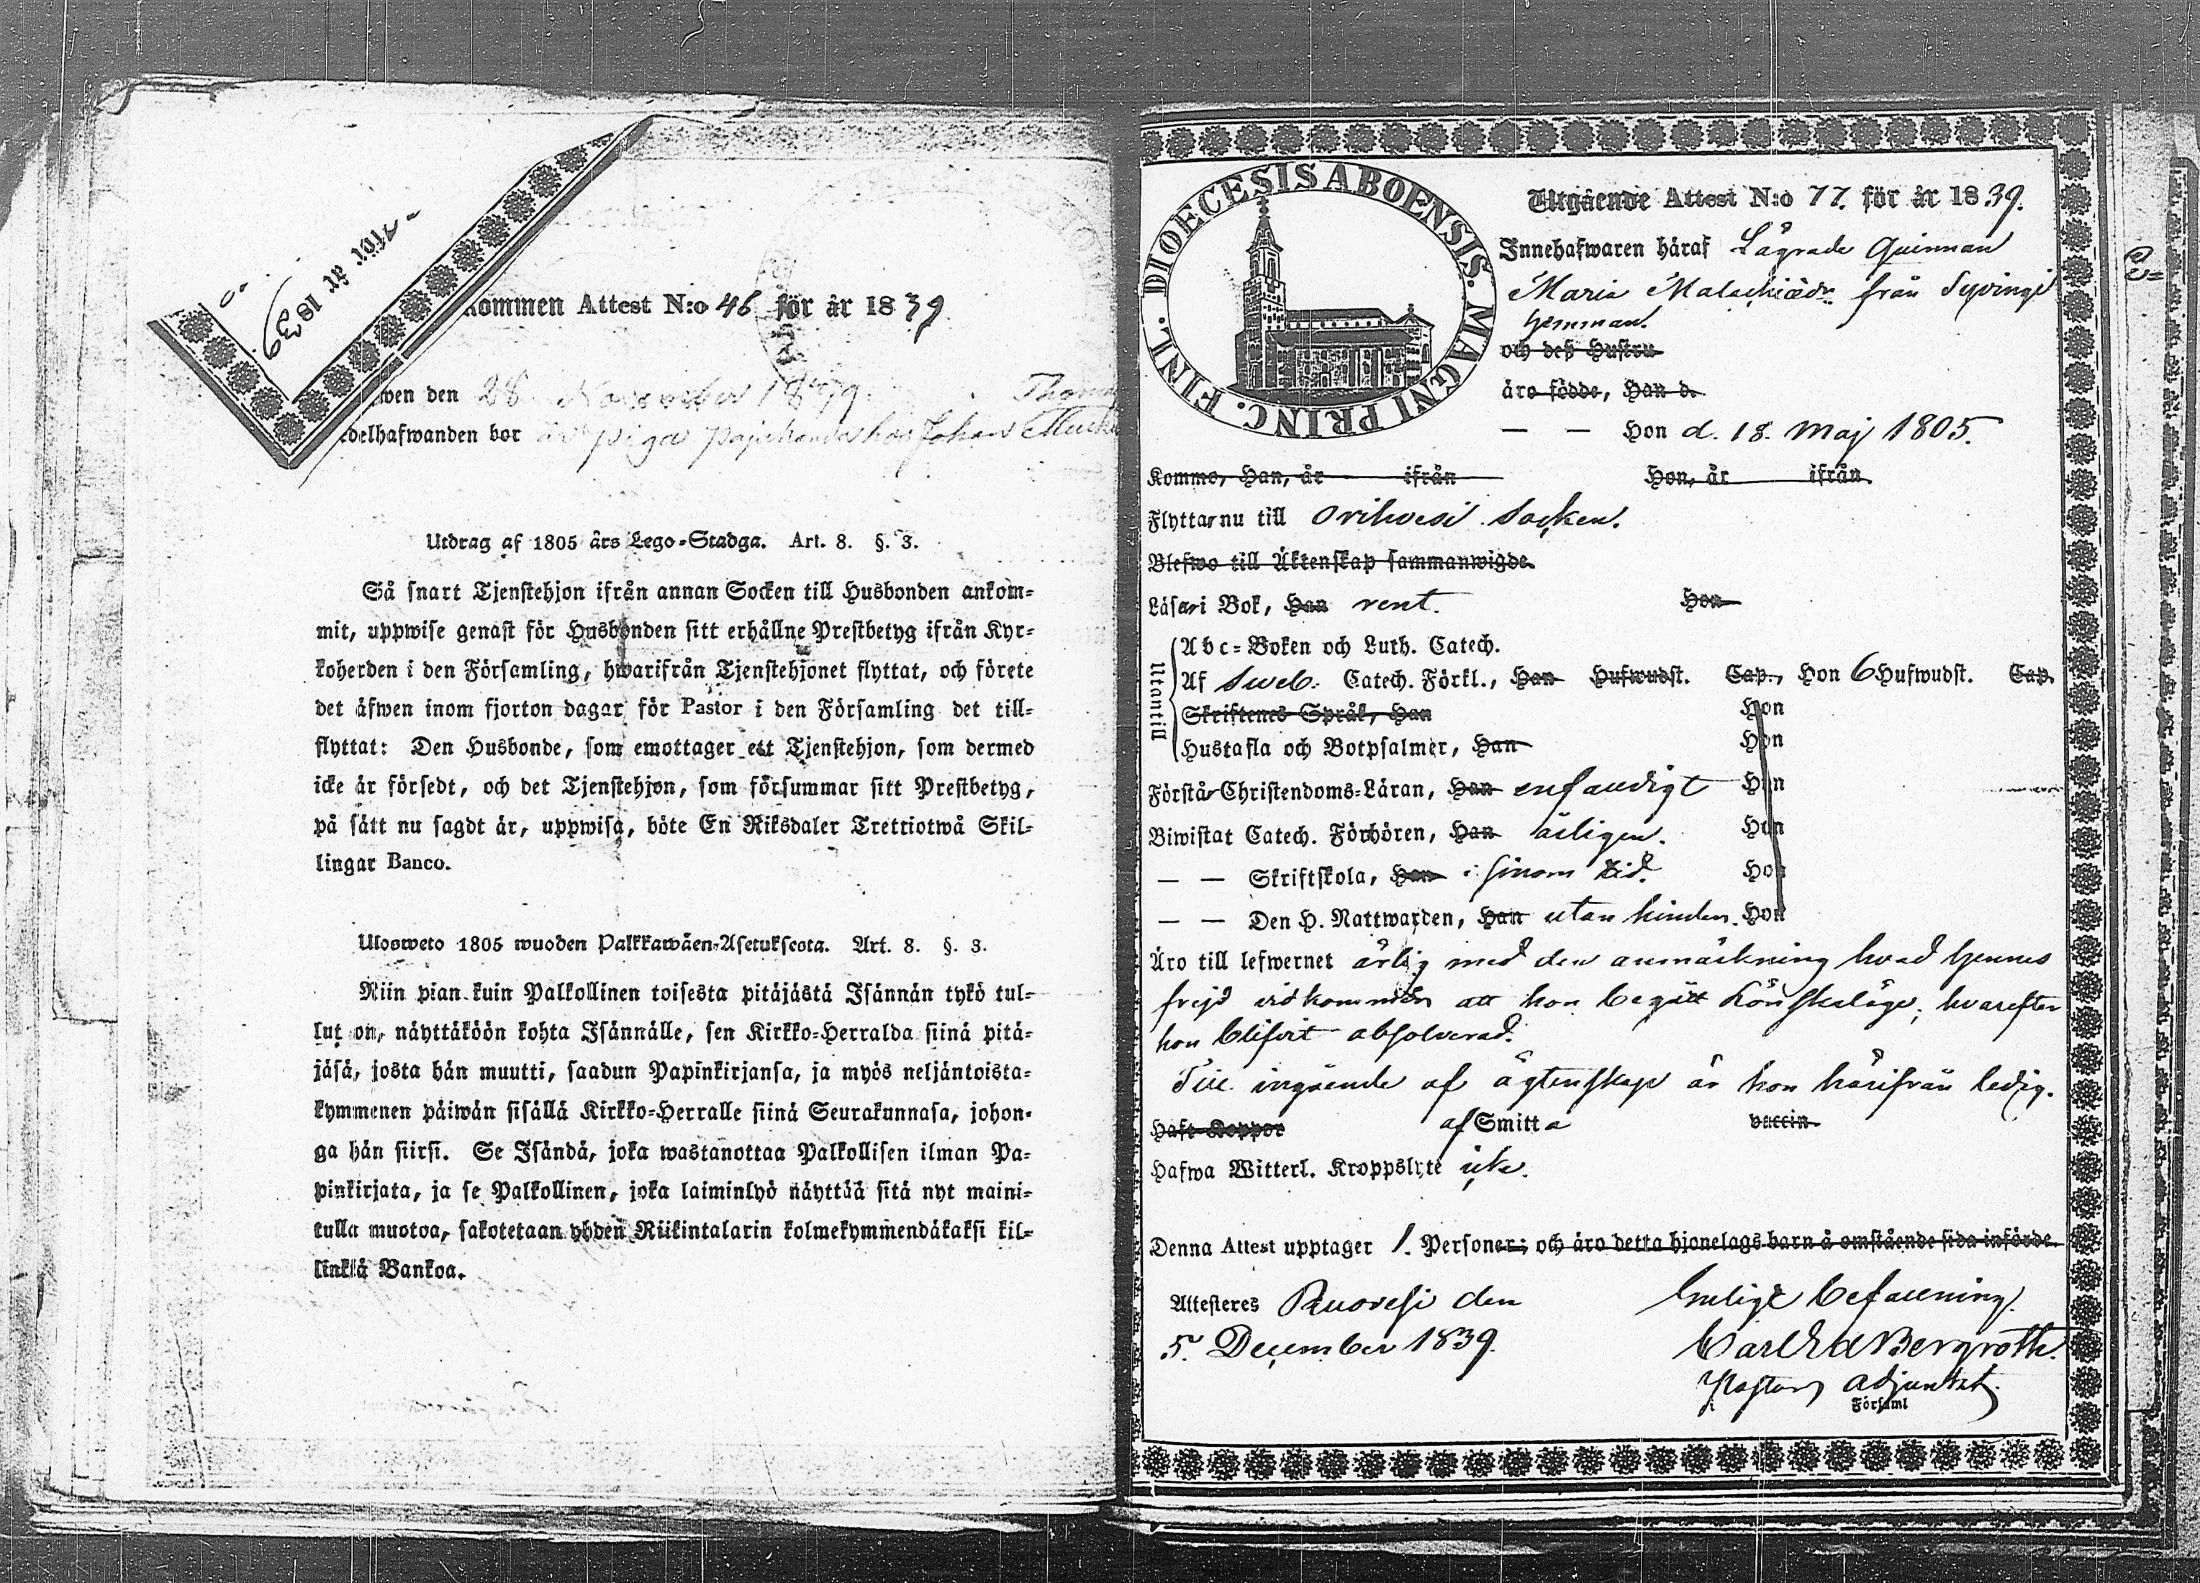 för år 1839
kommen Attest N:o 46 för år 1839
wen den 28 November 1879. Thom
edelhafwanden bor piga Pajukanda hos Johan
Utdrag af 1805 års Lego-Stadga. Art. 8. §. 3.
Så snart Tjenstehjon ifrån annan Socken till Husbonden ankom-
mit, uppwise genast för Husbonden sitt erhållne Prestbetyg ifrån Kyr-
koherden i den Församling, hwarifrån Tjenstehjonet flyttat, och förete
det äfwen inom fjorton dagar för Pastor i den Församling det till-
flyttat: Den Husbonde, som emottager ett Tjenstehjon, som dermed
icke är försedt, och det Tjenstehjon, som försummar sitt Prestbetyg,
på sätt nu sagdt är, uppwisa, böte En Riksdaler Trettiotwå Skil-
lingar Banco.
Ulosweto 1805 wuoden Palkkawäen-Asetuksesta. Art. 8. §. 3.
Niin pian kuin Palkollinen toisesta pitäjästä Isännän tykö tul-
lut on, näyttäköön kohta Isännälle, sen Kirkko-Herralda siinä pitä-
jäsä, josta hän muutti, saadun Papinkirjansa, ja myös neljäntoista-
kymmenen päiwän sisällä Kirkko-Herralle siinä Seurakunnasa, johon-
ga hän siirsi. Se Isändä, joka wastanottaa Palkollisen ilman Pa-
pinkirjata, ja se Palkollinen, joka laiminlyö näyttää sitä nyt maini-
tulla muotoa, sakotetaan yhden Riikintalarin kolmekymmendäkaksi kil-
linkiä Bankoa.
DIOECESIS ABOENSIS. MAGNI PRINC. FINL.
Utgående Attest N:o 77. för år 1839.
Innehafwaren häraf Lägrade Quinnan
Maria Malachiædr. från Syvingi
hemman.
och deß Hustru
äro födde, Han d.
— — Hon d. 18. Maj 1805.
Komme, Han, år ifrån Hon, år ifrån
Flyttar nu till Orihvesi Socken.
Blefwo till Äktenskap sammanwigde.
Läser i Bok, Han rent. Hon
Utantill
Abc-Boken och Luth. Catech.
Af Sweb. Catech. Förkl., Han Hufwudst. Cap., Hon 6 Hufwudst. Cap.
Skriftenes Språk, Han Hon
Hustafla och Botpsalmer, Han Hon
Förstår Christendoms-Läran, Han enfaldigt Hon
Biwistat Catech. Förhören, Han årligen. Hon
— — Skriftskola, Han i sinom tid. Hon
— — Den H. Nattwarden, Han utan hinder. Hon
Äro till lefwernet ärlig med den anmärkning hvad hennes
frejd vidkommer att hon begått Lönskaläge, hvarefter
hon blifvit absolverad.
Till ingående af ägtenskap är hon härifrån ledig.
Haft Koppor af Smitta vaccin
Hafwa Witterl. Kroppslyte icke.
Denna Attest upptager 1. Personer; och äro detta hjonelags barn å omstående sida införde.
Attesteres Ruovesi den Enligt befallning.
5. December 1839. Carl Ed Bergroth.
Pastors adjunkt.
i Församl